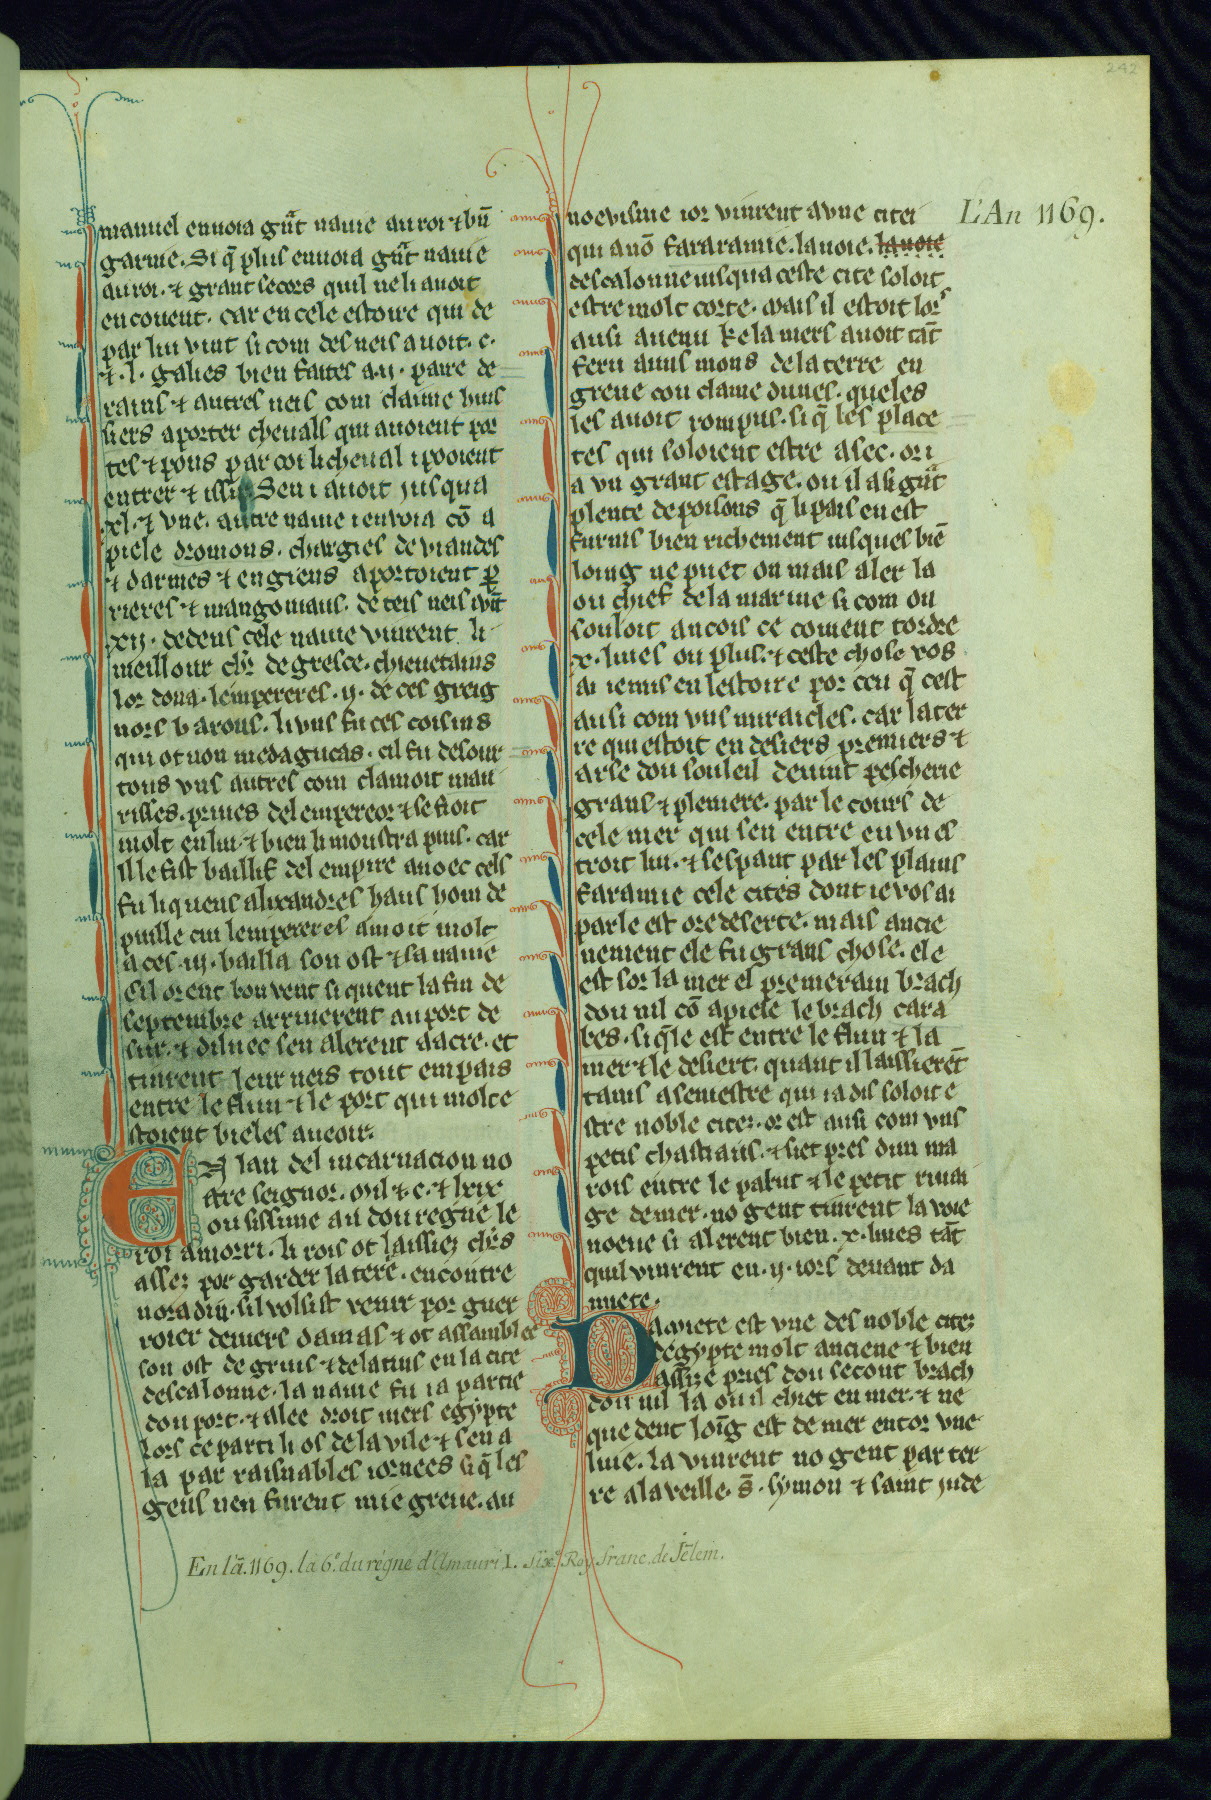 242
manuel enuoia gũt nauie au roi ⁊ bñ
garnie. Si q̃ plus enuoia gũt nauie
au roi. ⁊ grant secors quil ne li auoit
en couent. car en cele estoire qui de
par lui vint si com des neis auoit .c.
⁊ .l. galies bien faites a .ii. paire de
rains ⁊ autres neis com claime huis
siers a porter cheuals qui auoient por
tes ⁊ pons par coi li cheual i pooient
entrer ⁊ issir Sen i auoit jusqua
.xl. ⁊ vne. autre nauie i enuoia cõ a
piele dromons. chargies de viandes
⁊ darmes ⁊ engiens aportoient ꝑ
rieres ⁊ mangoniaus. de teis neis i ot
xij. dedens cele nauie vinrent li
meillour chr̃ de gresce. chieuetains
lor dona. lempereres .ij. de ces greig
nors barons. li vns fu ces coisins
qui ot non medagucas. cil fu desour
tous vns autres com clamoit mau
risses. priues del empereor ⁊ se fioit
molt en lui ⁊ bien li moustra puis. car
il le fist baillif del empire auoec cels
fu li quens alixandres haus hom de
puille cui lempereres amoit molt
a ces .iij. bailla son ost ⁊ sa nauie
cil orent bon vent si quent la fin de
septembre arriuerent au port de
sur. ⁊ diluec sen alerent a acre. et
tinrent leur neis tout em pais
entre le flun ⁊ le port qui molt e
stoient bieles a ueoir.
EN lan del incarnacion no
stre seignor. Mil ⁊ .c. ⁊ lxix
ou sissime an dou regne le
roi amorri. li rois ot laissiez chr̃s
assez por garder la tere. encontre
noradin. sil volsist venir por guer
roier deuiers damas ⁊ ot assamble
son ost de grius ⁊ de latins en la cite
descalonne. la nauie fu ia partie
dou port. ⁊ alee droit uiers egypte
lors ce parti li os de la vile ⁊ sen a
la par raisnables iornees si q̃ les
gens nen furent mie greue. au
noevisme ior vinrent a vne citei
qui a nõ fararamie. la uoie. la uoie
descalonne iusqua ceste cite soloit
estre molt corte. mais il estoit lors
ausi auenu ke la mers auoit tãt
feru a uns mons de la terre en
greue con claime dunes. queles
les auoit rompus. si q̃ les place
tes qui soloient estre a sec. or i
a vn grant estage. ou il a si gũt
plente de poisons q̃ li pais en est
furnis bien richement iusques biẽ
loing ne puet on mais aler la
ou chief de la marine si com on
souloit ancois ce couient tordre
.x. liues ou plus. ⁊ ceste chose vos
ai ie mis en lestoire por ceu q̃ cest
ausi com vns miracles. car la ter
re qui estoit en desiers premiers ⁊
arse dou souleil deuint pescherie
grans ⁊ pleniere. par le cours de
cele mer qui sen entre en vn es
troit liu. ⁊ sespant par les plains
faramie cele cites dont ie vos ai
parle est ore deserte. mais ancie
nement ele fu grans chose. ele
est sor la mer el premerain brach
dou nil cõ apiele le brach cara
bes. si q̃le est entre le flun ⁊ la
mer ⁊ le desiert. quant il laissierẽt
tanis a semestre qui iadis soloit e
stre noble citez. or est ausi com vns
petis chastiaus. ⁊ siet pres dun ma
rois entre le palut ⁊ le petit riuai
ge de mer. no gent tinrent la voie
noeue si alerent bien .x. liues tãt
quil vinrent en .ij. iors deuant da
miete.
Damiete est vne des noble citez
degypte molt anciene ⁊ bien
assize pries dou secont brach
dou nil la ou il chiet en mer. ⁊ ne
que dent loĩg est de mer entor vne
liue. la vinrent no gent par ter
re a la veille. s̃. symon ⁊ saint jude
L'An 1169.
En l'ã. 1169. la 6.e du régne d'Amauri I. six.e Roy franc de Jẽlem.